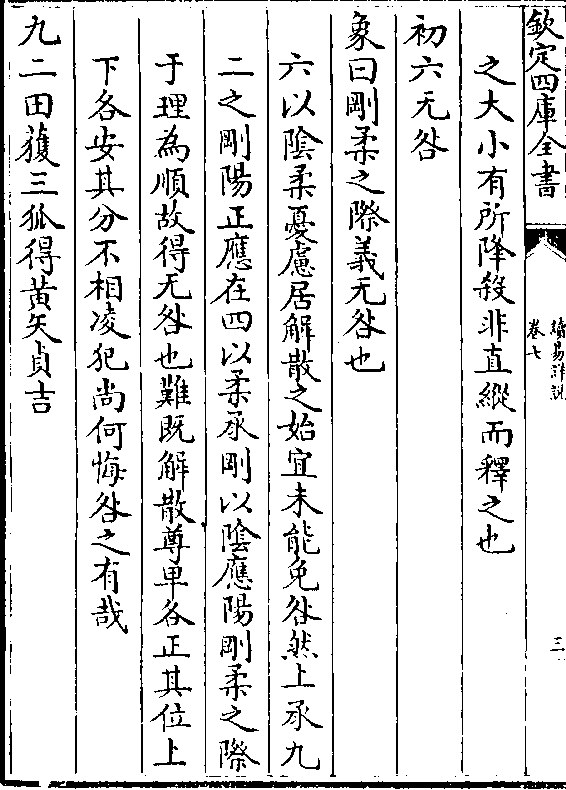 欽定四庫全書
讀易詳説
卷七
三
之大小有所降殺非直縱而釋之也
初六无咎
象曰剛柔之際義无咎也
六以陰柔憂慮居解散之始宜未能免咎然上承九
二之剛陽正應在四以柔承剛以陰應陽剛柔之際
于理為順故得无咎也難既解散尊卑各正其位上
下各安其分不相凌犯尚何悔咎之有哉
九二田獲三狐得黃矢貞吉